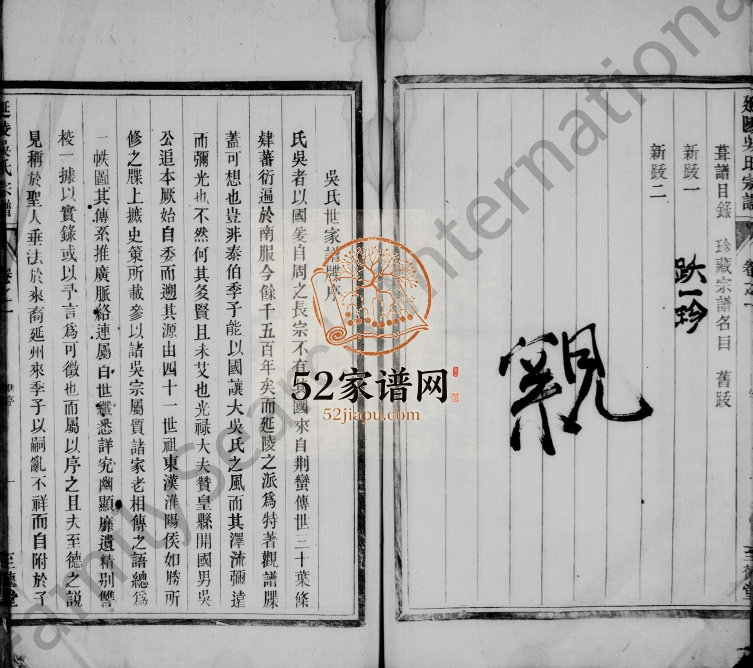 延陵吳氏宗譜
葺譜目錄 珍藏宗譜名目 舊跋
新跋一
新跋二
至德堂
親
吳氏世家譜牒序
氏吳者以國爰自周之長宗不有其國來自荆蠻傳世三十葉條
肄蕃衍遍於南服今餘千五百年矣而延陵之派爲特著觀譜牒
蓋可想也豈非泰伯季子能以國讓大吳氏之風而其澤流彌遠
而彌光也不然何其爰賢且未艾也光祿大夫贊皇縣開國男吳
公追本厥始自委而遡其源由四十一世祖東漢淮陽侯如勝所
修之牒上摭史策所載參以諸吳宗屬質諸家老相傳之語總爲
一帙圖其傳系推廣脈絡連屬百世纖悉詳究幽顯靡遺精别讐
校一據以實錄或以予言爲可徵也而屬以序之且夫至德之說
見稱於聖人垂法於來裔延州來季子以嗣亂不祥而自附於子
延陵吳氏宗譜
卷之一
一
至德堂
52家谱网
52jiapu.com
FamilySearch International